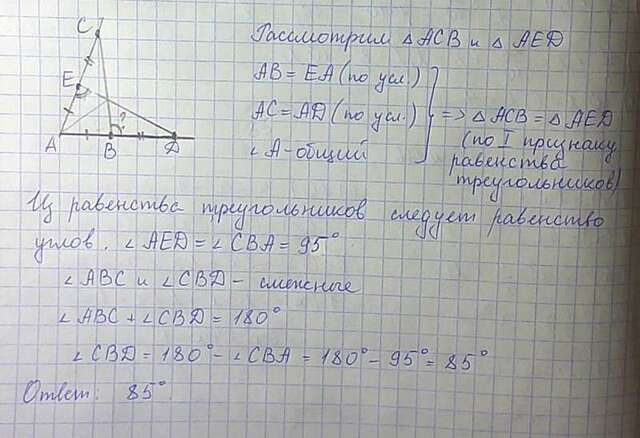 C
E
?
A B D
Рассмотрим △ ACB и △ AED
AB = EA (по усл.)
AC = AD (по усл.) => △ ACB = △ AED
∠ A - общий (по I признаку
равенства
треугольников)
Из равенства треугольников следует равенство
углов. ∠ AED = ∠ CBA = 95°
∠ ABC и ∠ CBD - смежные
∠ ABC + ∠ CBD = 180°
∠ CBD = 180° - ∠ CBA = 180° - 95° = 85°
Ответ: 85°